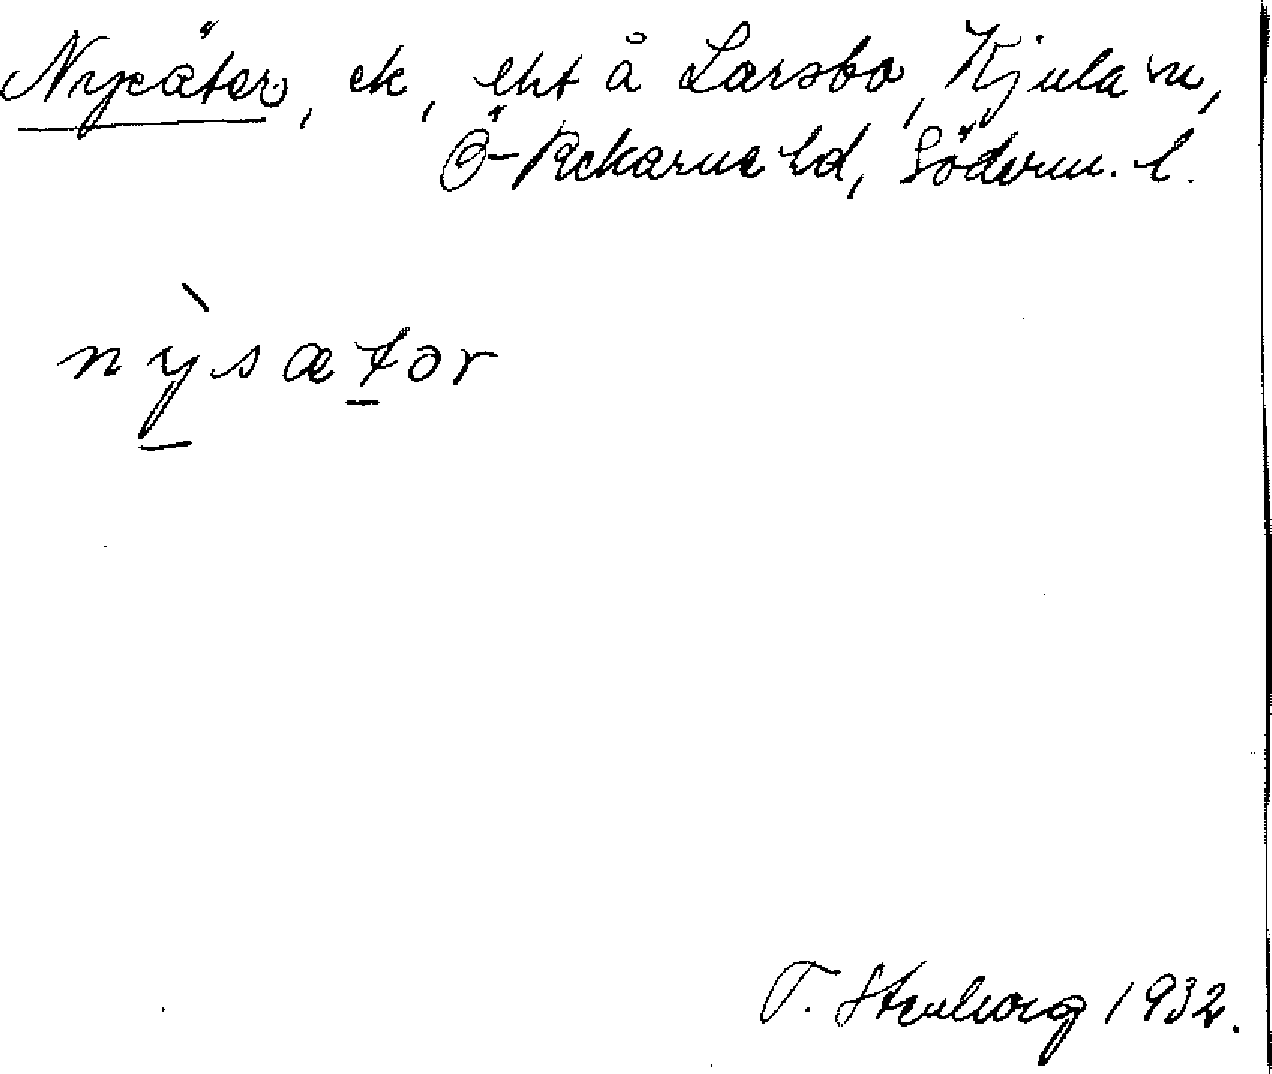 Nysäter, ek, eht å Larsbo, Kjula sn,
Ö-Rekarne hd, Söderm. l.
nỳsætər
T. Stenborg 1932.